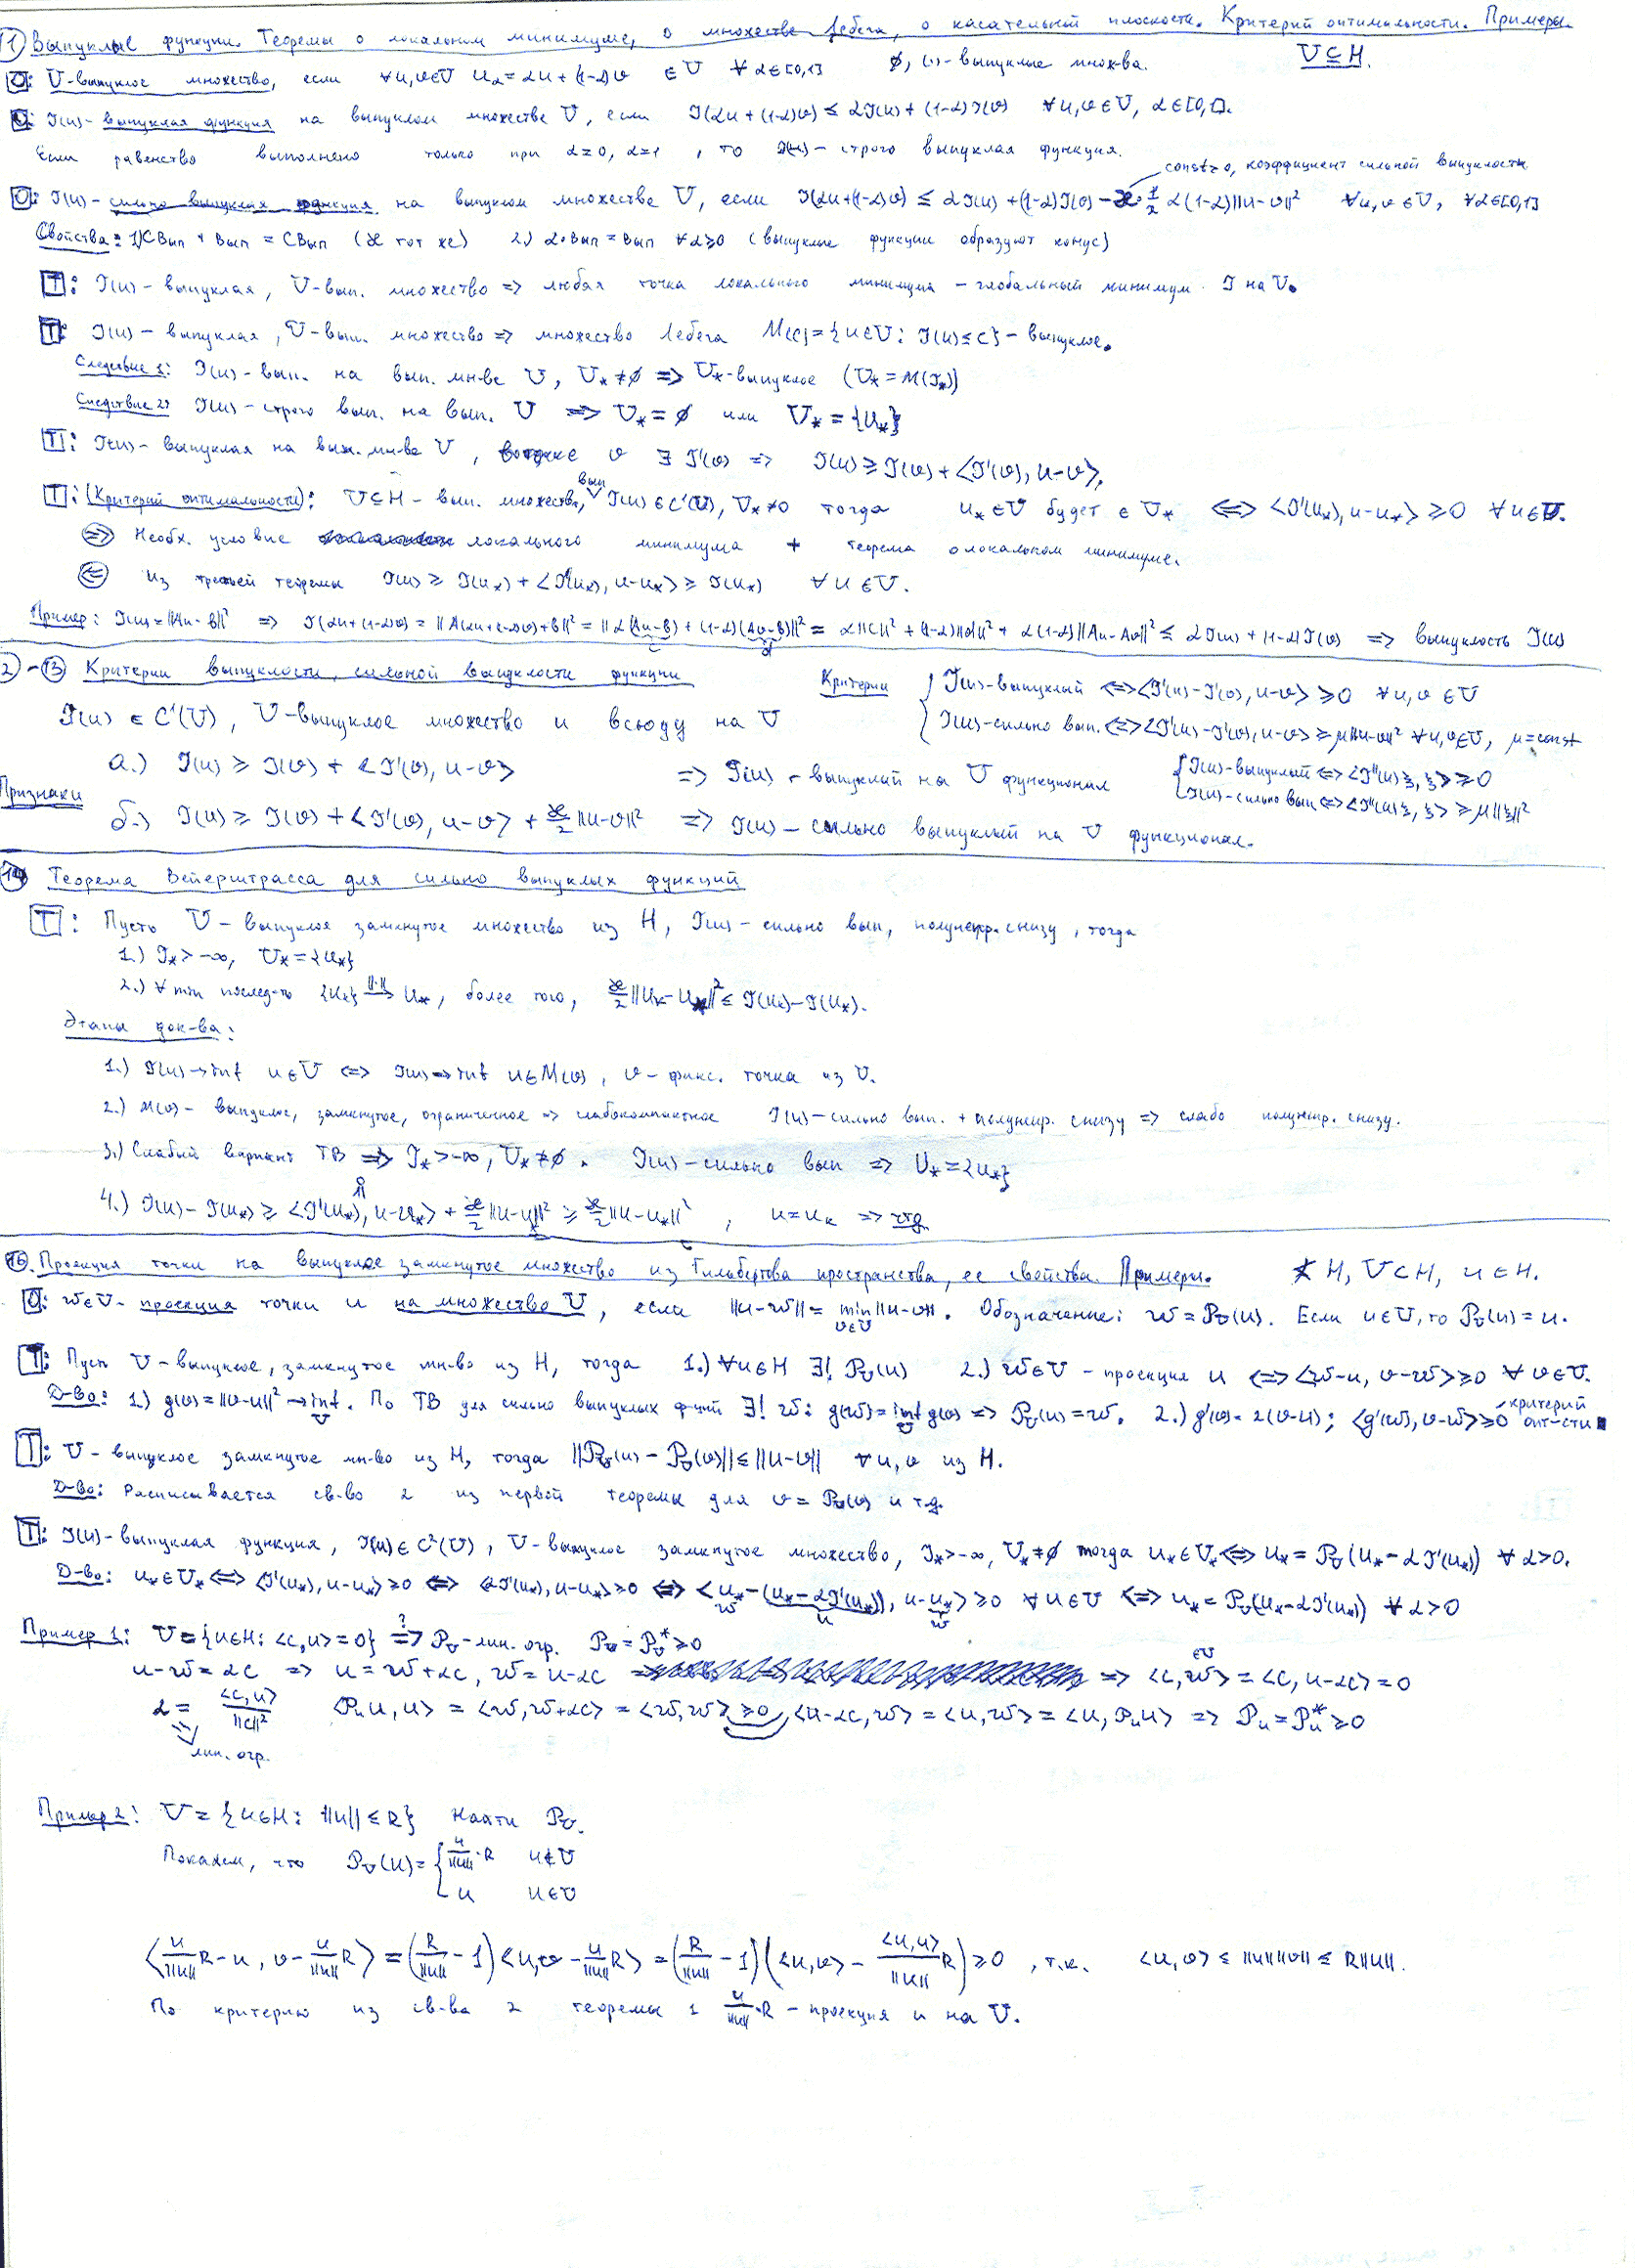 11) Выпуклые функции. Теоремы о локальном минимуме, о множестве Лебега, о касательной плоскости. Критерий оптимальности. Примеры.
О: U-выпуклое множество, если ∀u,v∈U u_α = αu+(1-α)v ∈U ∀α∈[0,1] ∅, {·}-выпуклые множ-ва. U⊆H.
О: J(u)-выпуклая функция на выпуклом множестве U, если J(αu+(1-α)v) ≤ αJ(u)+(1-α)J(v) ∀u,v∈U, α∈[0,1].
Если равенство выполнено только при α=0, α=1, то J(u)-строго выпуклая функция.
const>0, коэффициент сильной выпуклости
О: J(u)-сильно выпуклая функция на выпуклом множестве U, если J(αu+(1-α)v) ≤ αJ(u)+(1-α)J(v)-ϰ·½ α(1-α)||u-v||² ∀u,v∈U, ∀α∈[0,1]
Свойства: 1) СВып + Вып = СВып (ϰ тот же) 2.) α·Вып = Вып ∀α≥0 (выпуклые функции образуют конус)
Т: J(u)-выпуклая, U-вып. множество => любая точка локального минимума - глобальный минимум J на U.
Т: J(u)-выпуклая, U-вып. множество => множество Лебега M(c)={u∈U: J(u)≤c}-выпуклое.
Следствие 1: J(u)-вып. на вып. мн-ве U, U*≠∅ => U*-выпуклое (U*=M(J*))
Следствие 2: J(u)-строго вып. на вып. U => U*=∅ или U*={u*}
Т: J(u)-выпуклая на вып. мн-ве U, в точке v ∃ J'(v) => J(u)≥J(v)+<J'(v), u-v>.
Т: (Критерий оптимальности): U⊆H - вып. множество, вып J(u)∈C'(U), U*≠∅ тогда u*∈U будет ∈ U* <=> <J'(u*), u-u*> ≥0 ∀u∈U.
=> Необх. условие локального минимума + теорема о локальном минимуме.
<= Из третьей теоремы J(u) ≥ J(u*)+<J'(u*), u-u*> ≥ J(u*) ∀u∈U.
Пример: J(u)=||Au-b||² => J(αu+(1-α)v) = ||A(αu+(1-α)v)+b||² = ||α(Au-b)+(1-α)(Av-b)||² = α||c||²+(1-α)||d||²+α(1-α)||Au-Av||² ≤ αJ(u)+(1-α)J(v) => выпуклость J(u)
2)-13) Критерии выпуклости, сильной выпуклости функции
Критерии { J(u)-выпуклый <=> <J'(u)-J'(v), u-v> ≥0 ∀u,v∈U
J(u)∈C'(U), U-выпуклое множество и всюду на U
J(u)-сильно вып. <=> <J'(u)-J'(v), u-v> ≥ μ||u-v||² ∀u,v∈U, μ=const
а.) J(u) ≥ J(v) + <J'(v), u-v> => J(u) - выпуклый на U функционал
{ J(u)-выпуклый <=> <J''(u)ξ, ξ> ≥0
J(u)-сильно вып <=> <J''(u)ξ, ξ> ≥ μ||ξ||²
Признаки
б.) J(u) ≥ J(v) + <J'(v), u-v> + ϰ/2 ||u-v||² => J(u) - сильно выпуклый на U функционал.
14) Теорема Вейерштрасса для сильно выпуклых функций
Т: Пусть U - выпуклое замкнутое множество из H, J(u)-сильно вып, полунепр. снизу, тогда
1.) J*>-∞, U*={u*}
2.) ∀ min послед-ть {u_k} → u*, более того, ϰ/2 ||u_k-u*||² ≤ J(u_k)-J(u*).
Этапы док-ва:
1.) J(u)→inf u∈U <=> J(u)→inf u∈M(v), v-фикс. точка из U.
2.) M(v)- выпуклое, замкнутое, ограниченное => слабокомпактное J(u)-сильно вып. + полунепр. снизу => слабо полунепр. снизу.
3.) Слабый вариант ТВ => J*>-∞, U*≠∅. J(u)-сильно вып => U*={u*}
4.) J(u)-J(u*) ≥ <J'(u*), u-u*> + ϰ/2 ||u-u*||² ≥ ϰ/2 ||u-u*||², u=u_k => чтд
16. Проекция точки на выпуклое замкнутое множество из Гильбертова пространства, ее свойства. Примеры. H, U⊂H, u∈H.
О: w∈U- проекция точки u на множество U, если ||u-w||= min v∈U ||u-v||. Обозначение: w=P_U(u). Если u∈U, то P_U(u)=u.
Т: Пусть U-выпуклое, замкнутое мн-во из H, тогда 1.) ∀u∈H ∃! P_U(u) 2.) w∈U - проекция u <=> <w-u, v-w> ≥0 ∀v∈U.
Д-во: 1.) g(v)=||v-u||²→inf U. По ТВ для сильно выпуклых ф-ций ∃! w: g(w)=inf U g(v) => P_U(u)=w. 2.) g'(v)=2(v-u); <g'(w), v-w> ≥0 критерий опт-сти
Т: U- выпуклое замкнутое мн-во из H, тогда ||P_U(u)-P_U(v)|| ≤ ||u-v|| ∀u,v из H.
Д-во: Расписывается св-во 2 из первой теоремы для v=P_U(v) и т.д.
Т: J(u)-выпуклая функция, J(u)∈C²(U), U-выпуклое замкнутое множество, J*>-∞, U*≠∅ тогда u*∈U* <=> u*=P_U(u*-αJ'(u*)) ∀α>0.
Д-во: u*∈U* <=> <J'(u*), u-u*> ≥0 <=> <αJ'(u*), u-u*> ≥0 <=> <u*-(u*-αJ'(u*)), u-u*> ≥0 ∀u∈U <=> u*=P_U(u*-αJ'(u*)) ∀α>0
Пример 1: U={u∈H: <c,u>=0} ?=> P_U-лин. огр. P_U=P_U*≥0
u-w=αc => u=w+αc, w=u-αc => <c,w>=<c,u-αc>=0
∈U
α= <c,u>/||c||² <P_u u,u> = <w,w+αc> = <w,w> ≥0, <u-αc,w> = <u,w> = <u,P_u u> => P_u=P_u*≥0
лин. огр.
Пример 2: U={u∈H: ||u||≤R} Найти P_U.
Покажем, что P_U(u)= { u/||u||·R u∉U
u u∈U
<u/||u|| R-u, v-u/||u|| R> = (R/||u|| -1)<u,v-u/||u|| R> = (R/||u|| -1)(<u,v> - <u,u>/||u|| R) ≥0, т.к. <u,v> ≤ ||u||||v|| ≤ R||u||.
По критерию из св-ва 2 теоремы 1 u/||u||·R - проекция u на U.